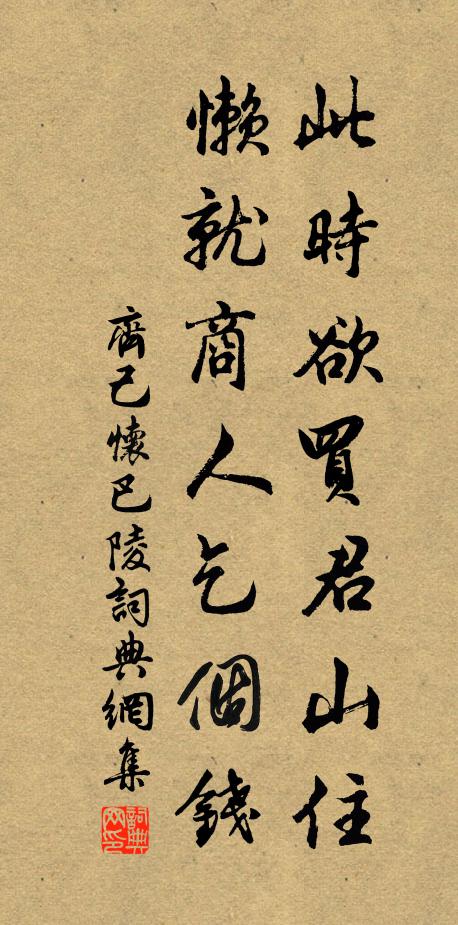 此時欲買君山住
懶就商人乞個錢
齊己懷巴陵詞典網集
詞典网印